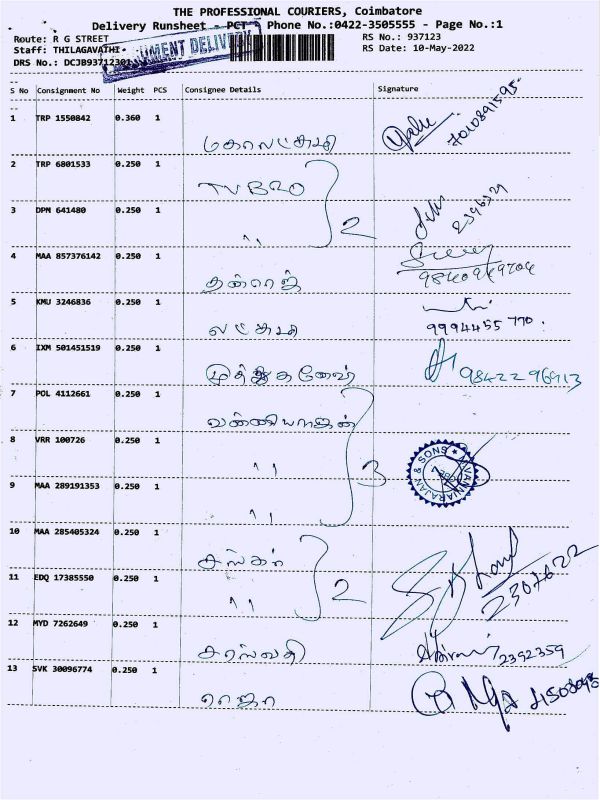 THE PROFESSIONAL COURIERS, Coimbatore
Delivery Runsheet - PCT - Phone No.:0422-3505555 - Page No.:1
Route: R G STREET RS No.: 937123
Staff: THILAGAVATHI RS Date: 10-May-2022
DRS No.: DCJB93712301
DOCUMENT DELIVERY
S No Consignment No Weight PCS Consignee Details Signature
1 TRP 1550842 0.360 1
மகாலட்சுமி 7010891595
2 TRP 6801533 0.250 1
TVBRO
3 DPM 641480 0.250 1 2 2396329
,,
4 MAA 857376142 0.250 1
தன்ராஜ்
5 KMU 3246836 0.250 1
லட்சுமி 9994455 770.
6 IXM 501451519 0.250 1
முத்துகணேஷ் 9842296913
7 POL 4112661 0.250 1
வன்னியராஜன்
8 VRR 100726 0.250 1
,, 3 M.VANNIARAJAN & SONS
9 MAA 289191353 0.250 1
,,
10 MAA 285405324 0.250 1
11 EDQ 17385550 0.250 1
,, 2 2307622
12 MYD 7262649 0.250 1
சரஸ்வதி 2392359
13 SVK 30096774 0.250 1
ராஜா